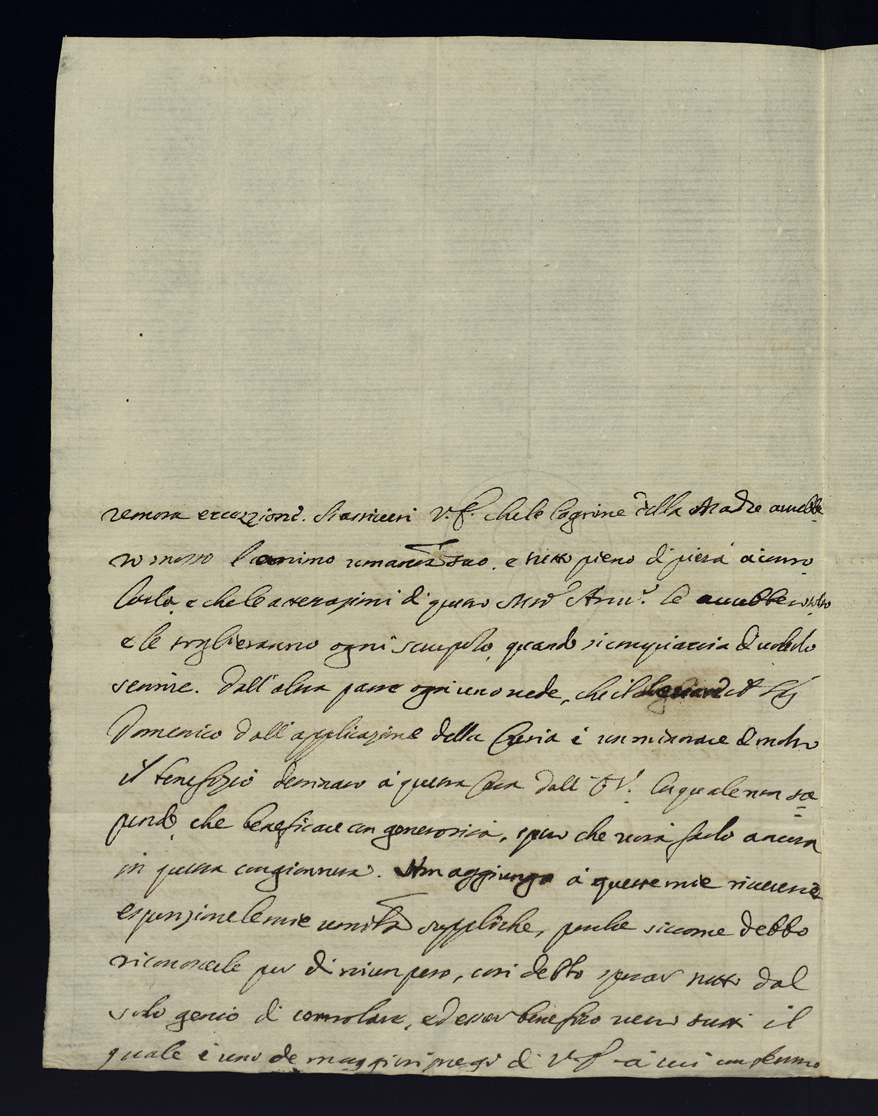 remora eccezzione. S'assicuri V.E. che le lagrime della Madre avrebbe
ro mosso l'animo umaniss suo, e tutto pieno di pietà à
e che le attestazioni di questo Mons Le avrebbero
e le toglieranno ogni scrupolo, quando si compiaccia di vederlo
sentire. Dall'altra parte ogni uno vede, che il
Domenico dall'applicazione della è un minorare di molto
il benefizio destinato à questa Casa dall' E V. la quale non sa
pendo, che beneficare con generosità, spero che vorrà farlo ancora
in questa congiontura. Non aggiungo à queste mie riverenti
espressioni le mie umiliss suppliche, perche siccome debbo
riconoscerle per di niun peso, così debbo sperar tutto dal
solo genio di consolare, ed esser benefico verso tutti il
quale è uno de maggiori pregi di V E à cui con